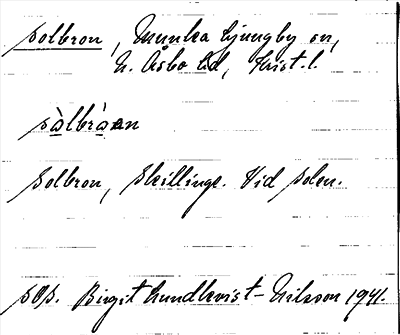 solbron, Munka Ljungby sn,
N. Åsbo hd, Krist. l.
sàlbràan
Solbron, Skillinge. Vid solen.
sOs. Birgit Lundkvist-Nilsson 1941.